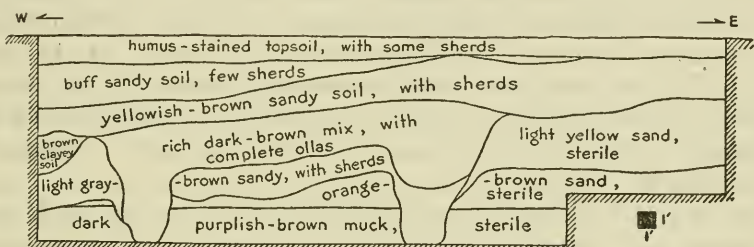 W E
humus-stained topsoil, with some sherds
buff sandy soil, few sherds
yellowish-brown sandy soil, with sherds
rich dark-brown mix, with
complete ollas
brown
clayey
soil
light yellow sand,
sterile
light gray-
-brown sandy, with sherds
orange-
-brown sand,
sterile
dark
purplish-brown muck,
sterile
1'
1'